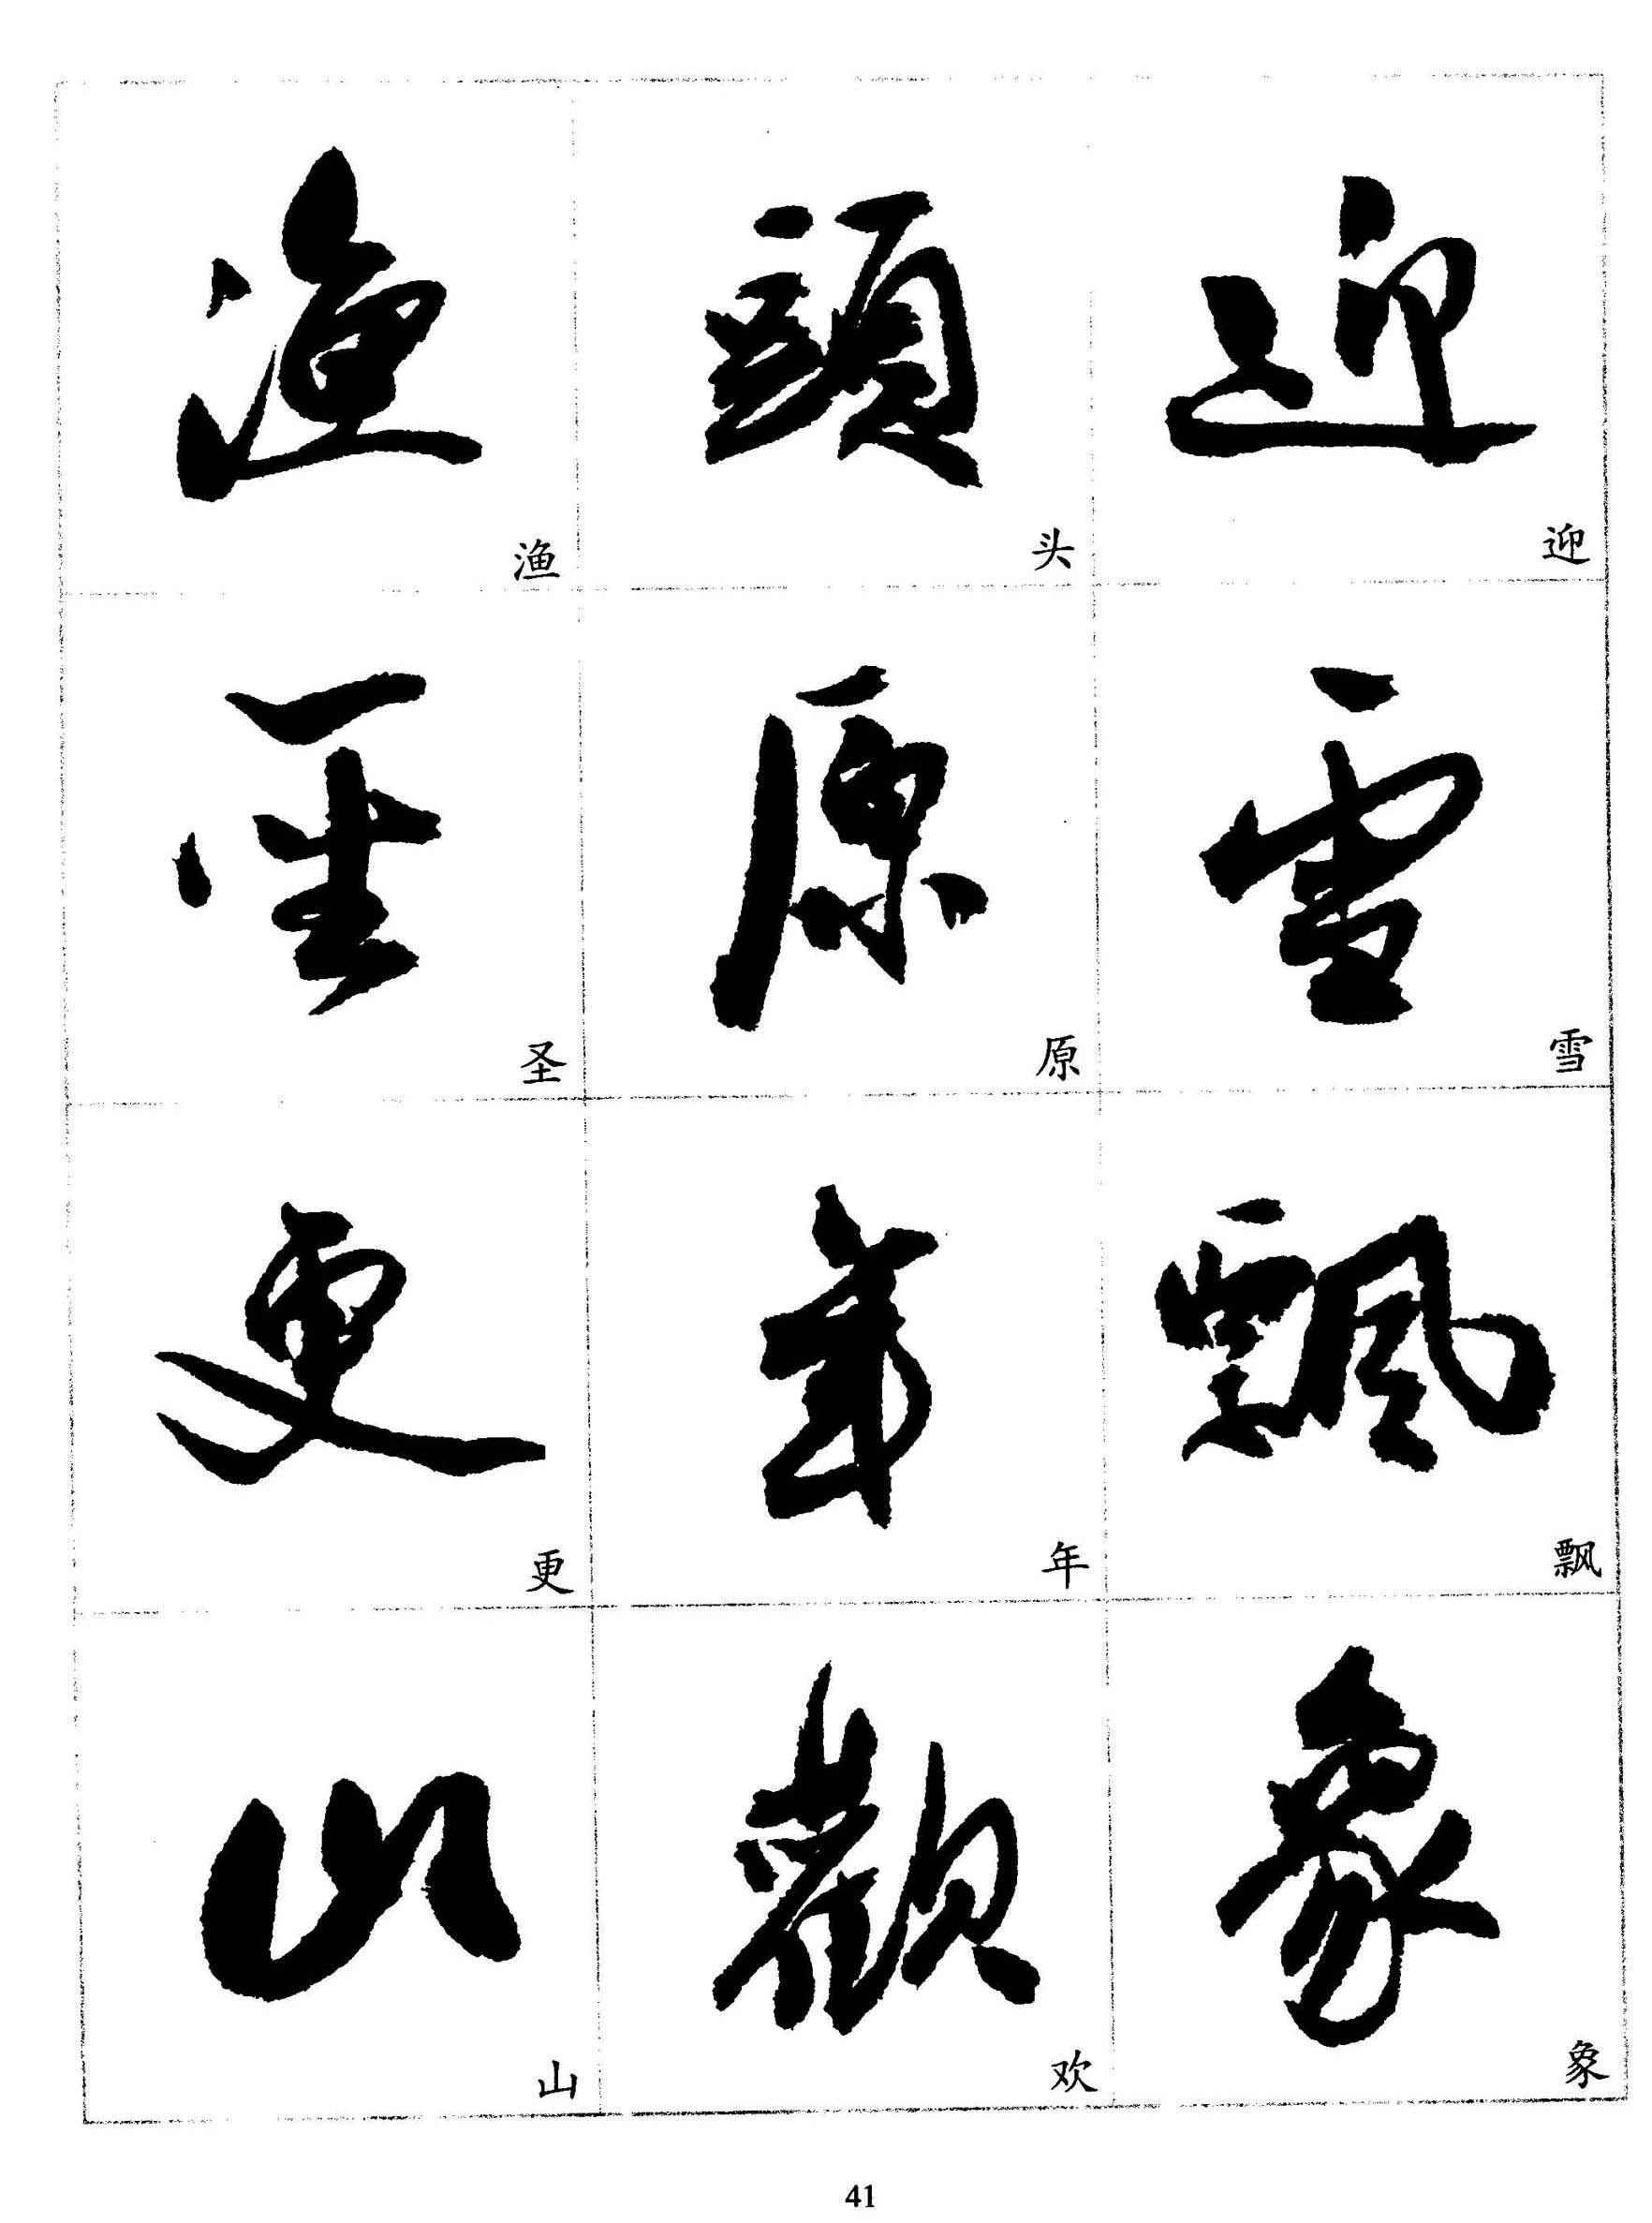 漁 頭 迎
渔 头 迎
聖 原 雪
圣 原 雪
更 年 飄
更 年 飘
山 觀 象
山 欢 象
41